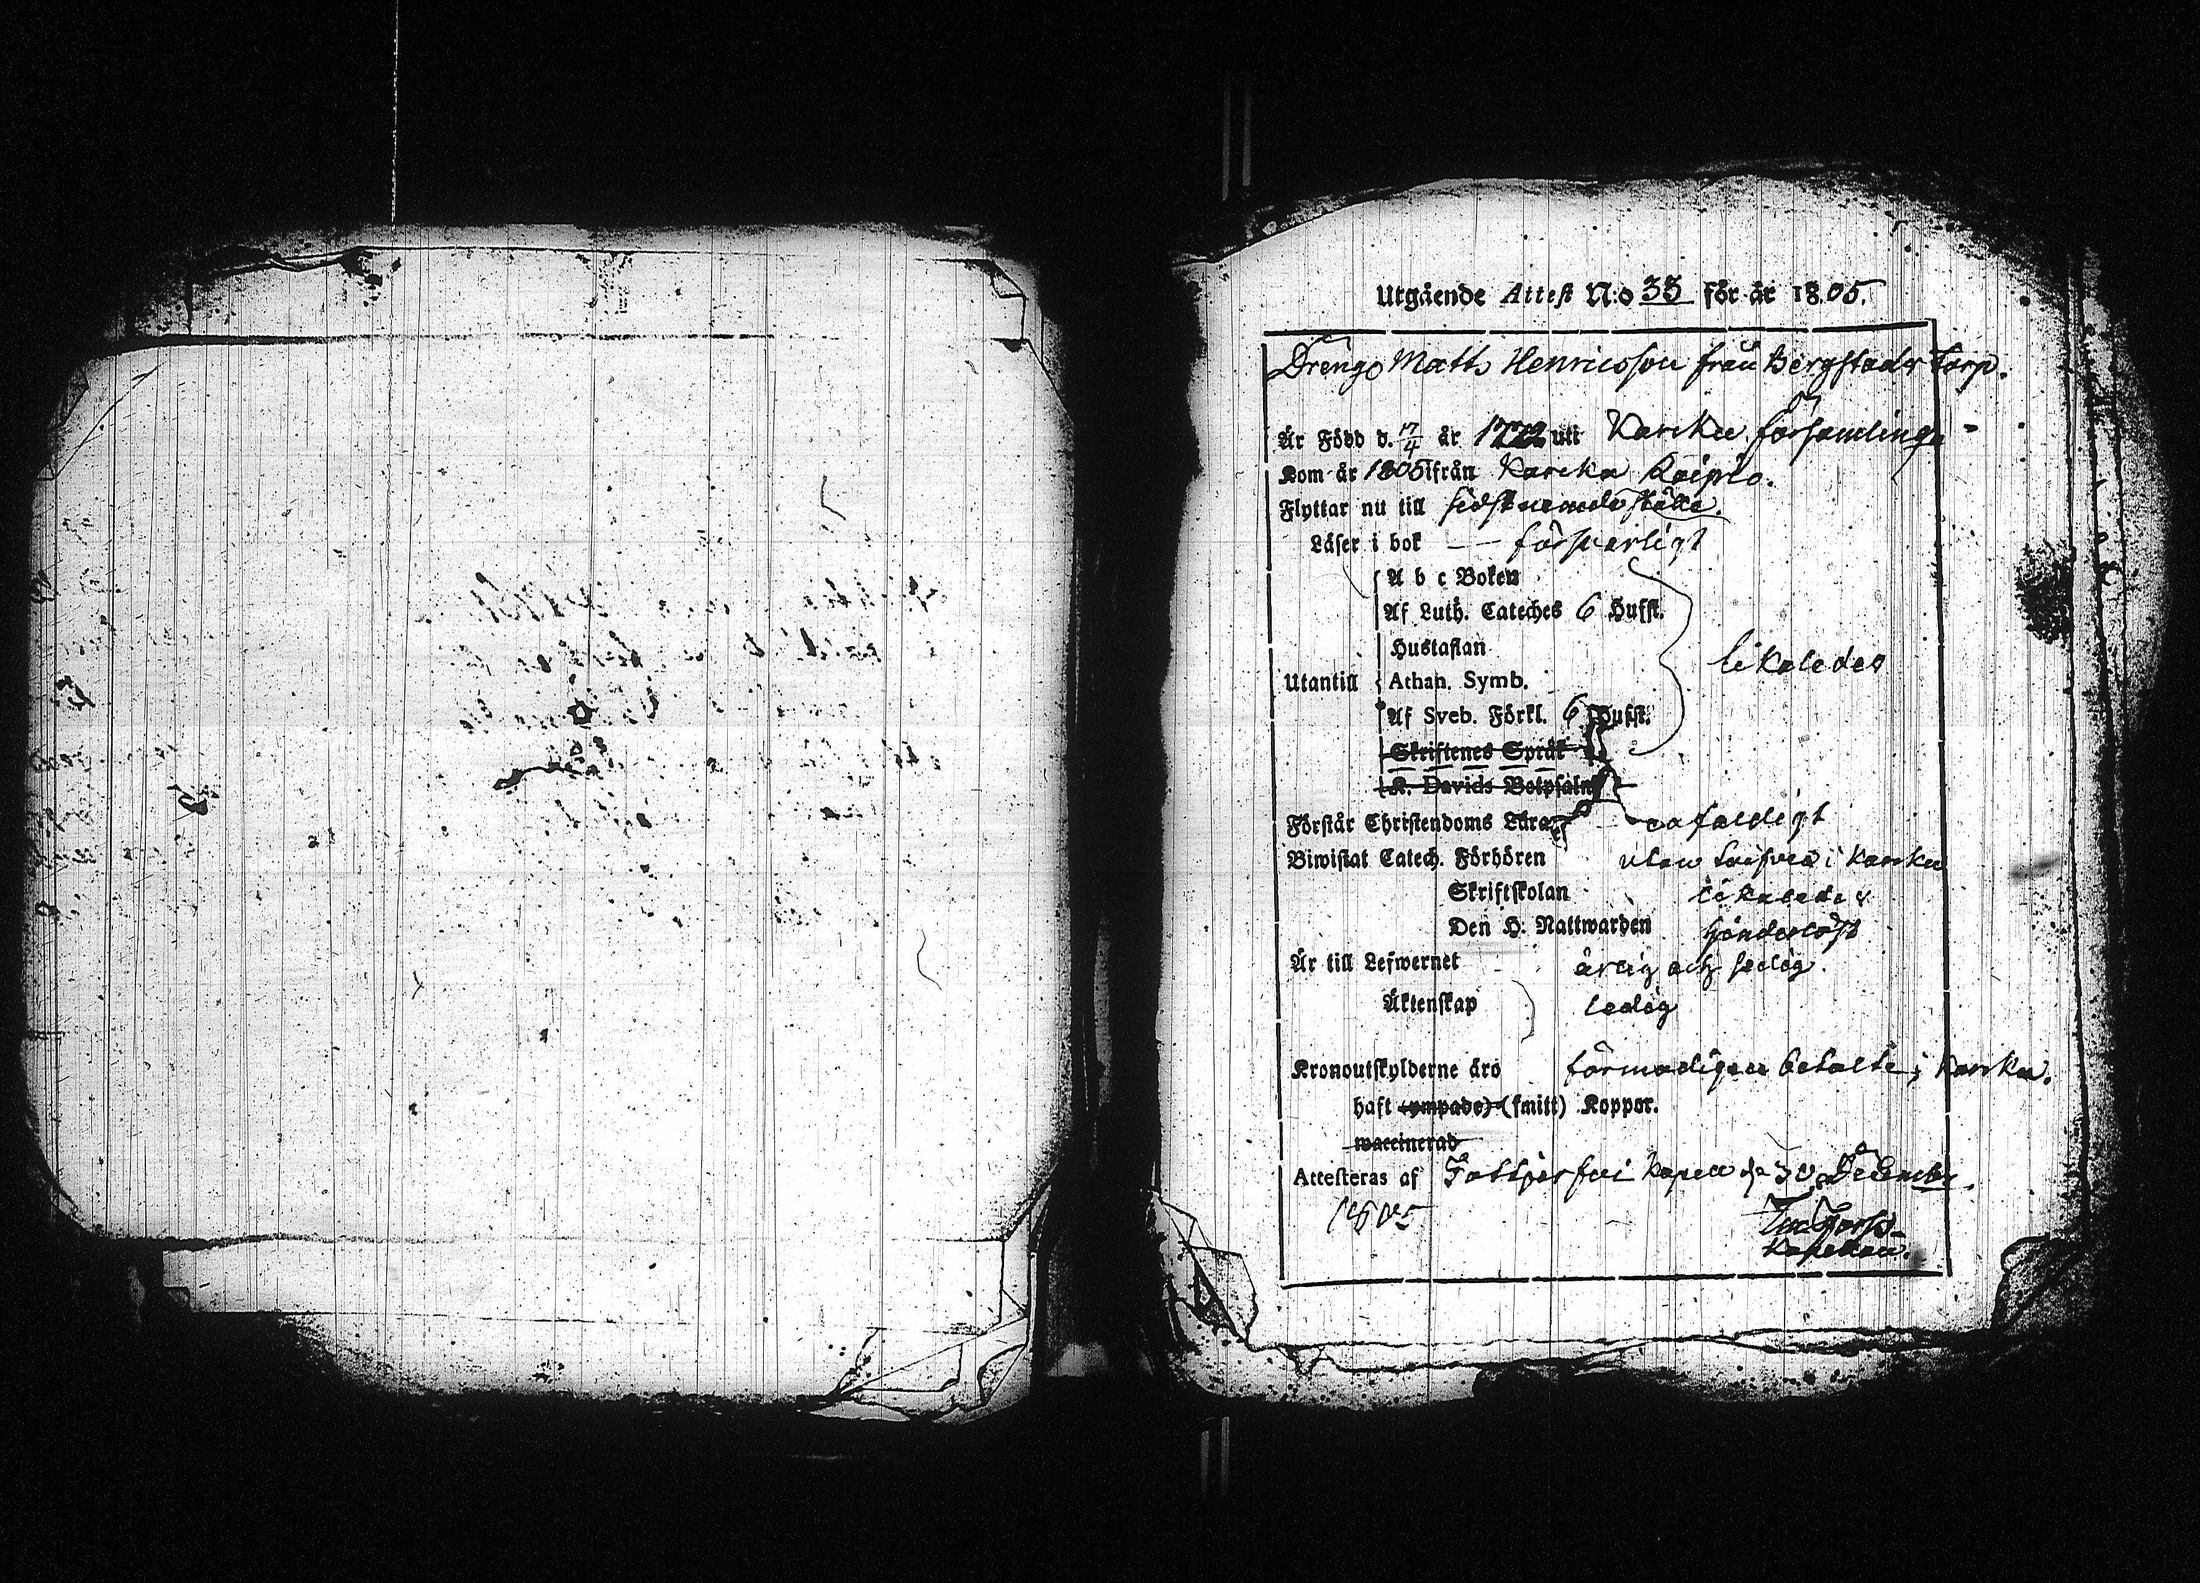 Utgående Attest N:o 35 för år 1805.
Dreng Matts Henricsson från Bergstads torp.
Är Född d. 17/4 år 1772 uti Karcku församling
Kom år 1805 ifrån Karcku Kaiplo.
Flyttar nu till sidstnemde ställe.
Läser i bok — försvarligt
A b c Boken
Af Luth. Cateches 6 Hufst.
Hustaflan
likaledes
Utantill Athan. Symb.
Af Sveb. Förkl. 6 Hufst.
Skriftenes Språk
K. Davids Botpsalm
Förstår Christendoms Lära enfaldigt
Biwistat Catech. Förhören utan twifvel i Karcku
Skriftskolan likaledes
Den H. Nattwarden
Är till Lefwernet ärlig och sedig.
Äktenskap ledig
Kronoutskylderne äro förmodligen betalte i Karcku.
haft (ympade) (smitt) Koppor.
waccinerad
Attesteras af kapell d. 30 December
1805
Kapellan.